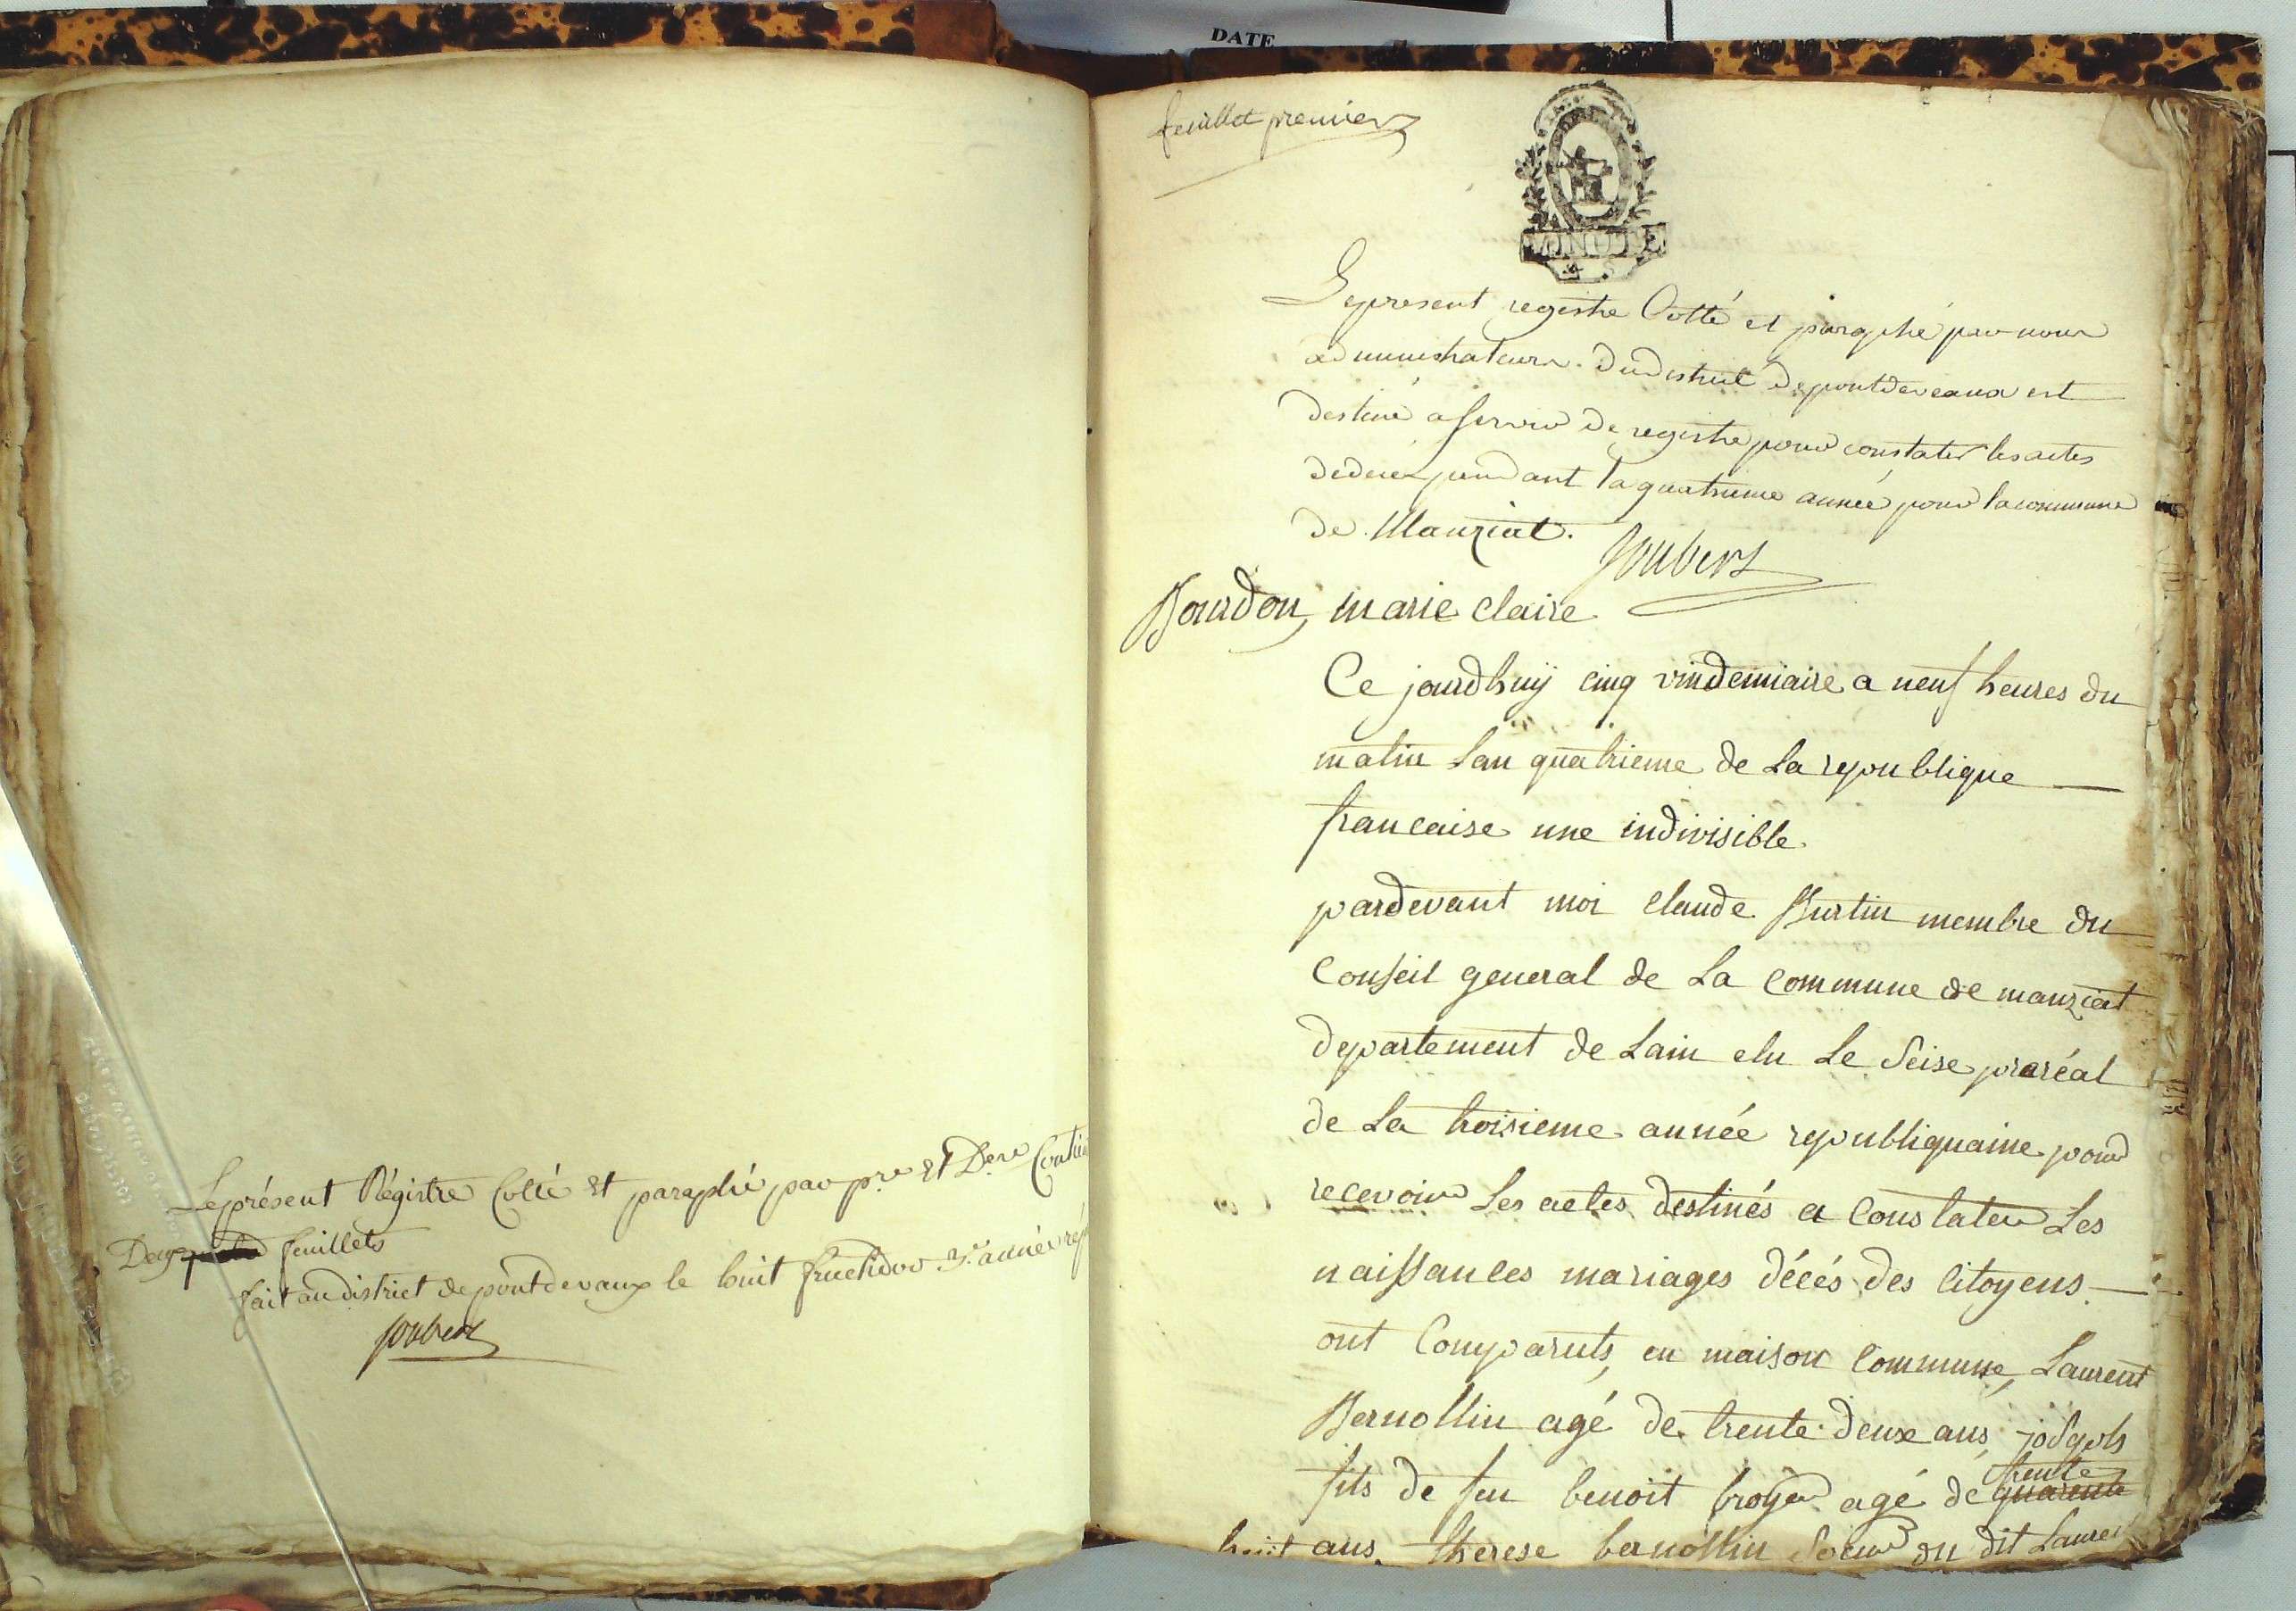 DATE
Leprésent Régistre Cotté et paraphé par pre et Dere Contient
Deux feuillets
fait au district de pontdevaux le huit fructidor 3e. année rép
Joubert
feuillet premier
Lepresent registre Cotté et paraphé par nous
administrateurs du district de pontdeveaux est
destiné a servir de registre pour constater les actes
dedeces pendant la quatrieme année pour la commune
de Manziat.
Joubert
Bourdon, marie claire
Ce jourdhuÿ cinq vindemiaire a neuf heures du
matin lan quatrieme de la republique
francaise une indivisible
pardevant moi claude Burtin membre du
Conseil general de la commune de manziat
departement de Lain elu le Seise praréal
de la troisieme année republiquaine pour
recevoir les actes destinés a Constater les
naissances mariages décés des citoyens
ont Comparuts, en maison Commune, Laurent
Bernollin agé de trente deux ans,
fils de feu benoit broyer agé de trente
quarente
huit ans, therese bernollin Soeur du dit Laurent